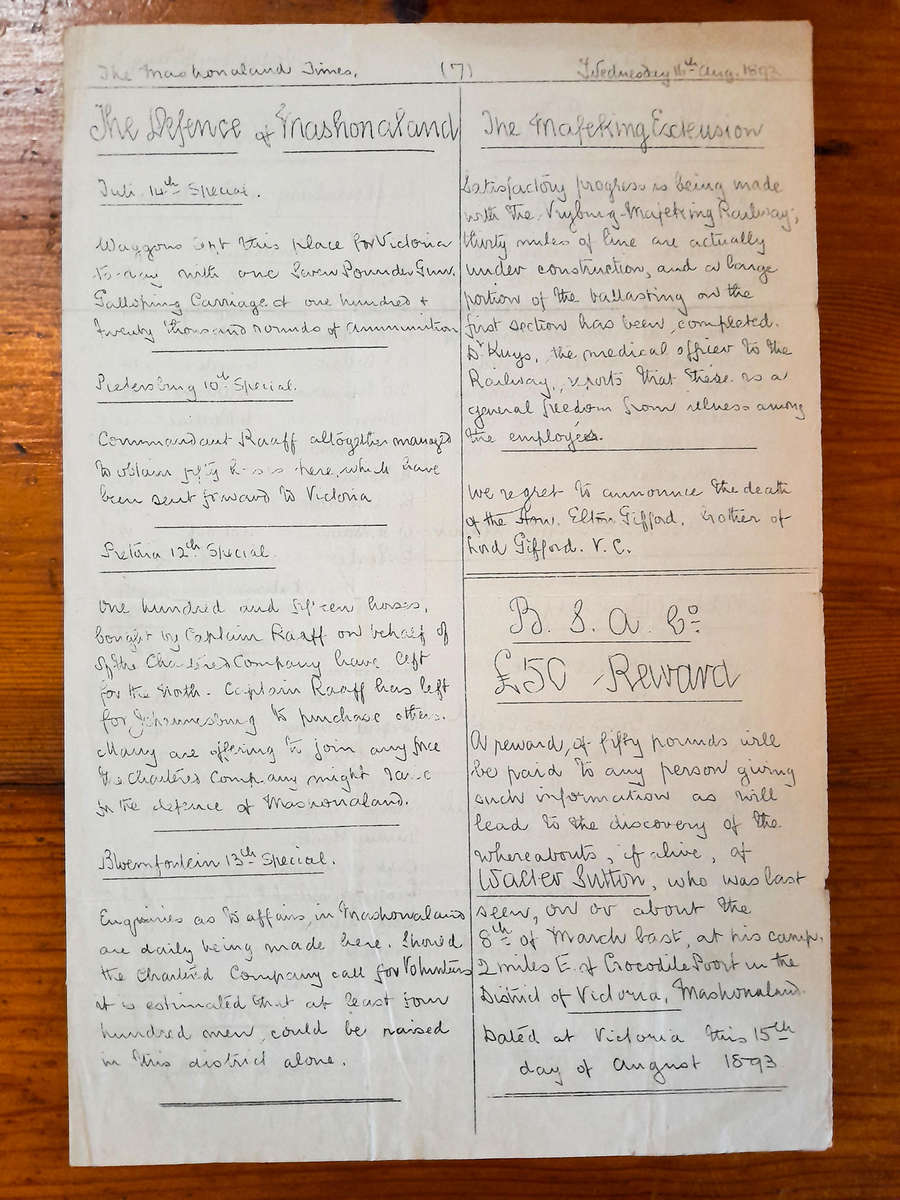 The Mashonaland Times.
(7)
Wednesday 16th Aug. 1893
The Defence of Mashonaland
Tuli 14th Special.
Waggons left this place for Victoria
to-day with one Seven Pounder Gun.
Galloping Carriage & one hundred &
twenty thousand rounds of ammunition
Pietersburg 10th Special.
Commandant Raaff altogether managed
to obtain fifty horses here, which have
been sent forward to Victoria
Pretoria 12th Special.
One hundred and fifteen horses,
bought by Captain Raaff on behalf of
of the Chartered Company have left
for the North. Captain Raaff has left
for Johannesburg to purchase others.
Many are offering to join any force
the Chartered Company might raise
in the defence of Mashonaland.
Bloemfontein 13th Special.
Enquiries as to affairs, in Mashonaland
are daily being made here. Should
the Chartered Company call for Volunteers
it is estimated that at least four
hundred men, could be raised
in this district alone.
The Mafeking Extension
Satisfactory progress is being made
with the Vryburg-Mafeking Railway;
thirty miles of line are actually
under construction, and a large
portion of the ballasting on the
first section has been completed.
Dr Kuys, the medical officer to the
Railway, reports that there is a
general freedom from illness among
the employées.
We regret to announce the death
of the Hon. Elton Gifford, brother of
Lord Gifford. V. C.
B. S. A. Co
£50 Reward
A reward, of fifty pounds will
be paid to any person giving
such information as will
lead to the discovery of the
whereabouts, if alive, of
Walter Sutton, who was last
seen, on or about the
8th of March last, at his camp,
2 miles E. of Crocodile Poort in the
District of Victoria, Mashonaland.
Dated at Victoria this 15th
day of August 1893